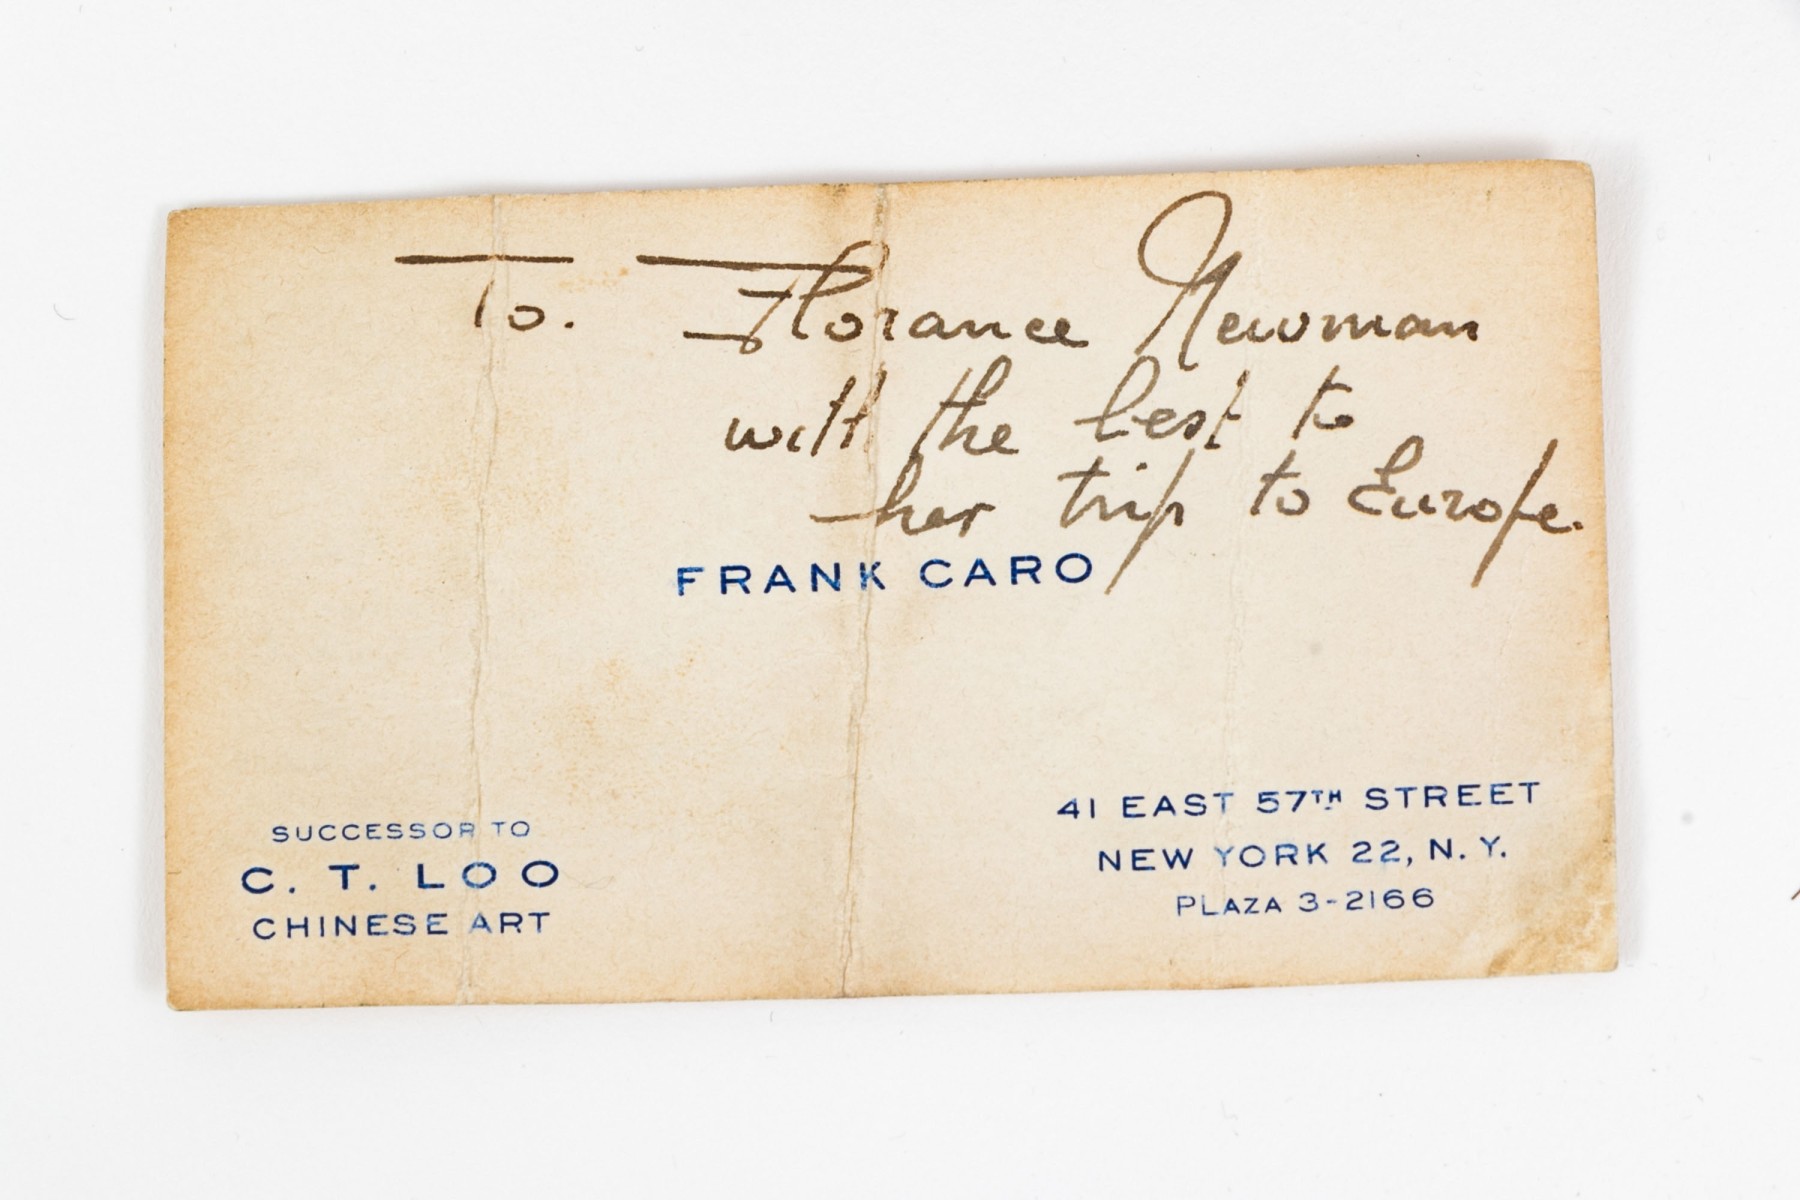 To. Florance Newman
with the best to
her trip to Europe.
FRANK CARO
SUCCESSOR TO
C. T. LOO
CHINESE ART
41 EAST 57TH STREET
NEW YORK 22, N. Y.
PLAZA 3-2166